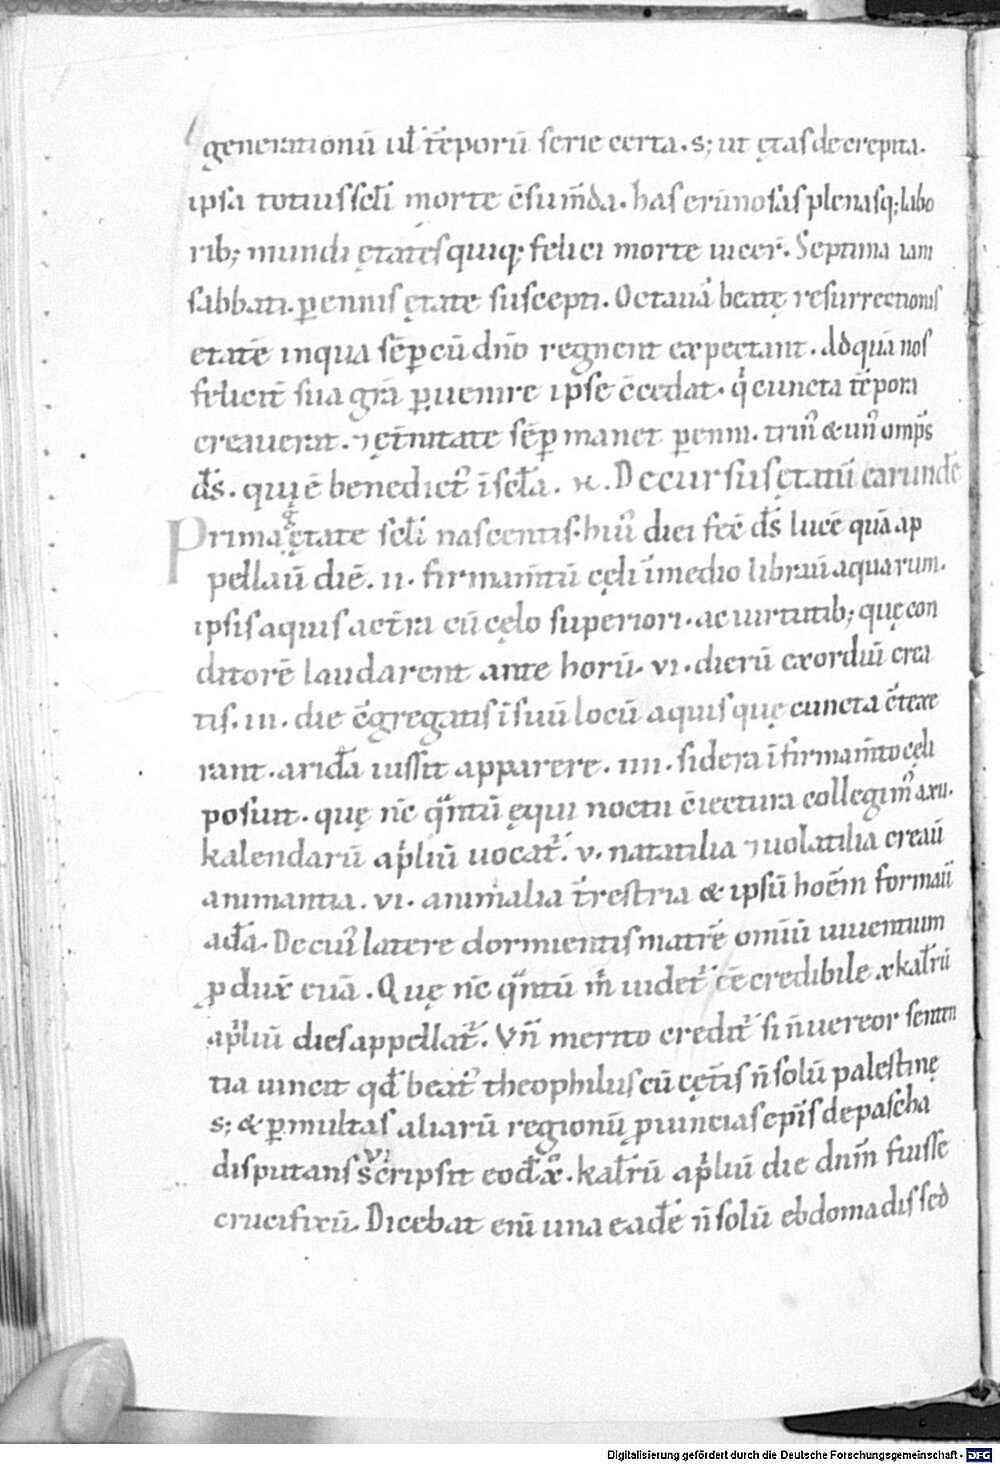 generationū ul̄ tēporū serie certa. s; ut ętas decrepita.
ipsa totius scl̄i morte c̄sum̄da. has erūnosas plenasq; labo
rib; mundi ętates quiq; felici morte uicer̄. Septima iam
sabbati. ꝑennis ętate suscepti. Octauā beatę resurrectionis
etatē in qua sēꝑ cū dn̄o regnent expectant. Ad quā nos
felicit̄ sua grā ꝑuenire ipse c̄cedat. q̄ cuncta tēpora
creauerat. ⁊ ęt̄nitate sēꝑ manet ꝑenni. trin᷒ & un᷒ omps̄
ds̄. quię benedict᷒ ī scl̄a. Decursus ętatū earundē
Prima ętate scl̄i nascentis. hui᷒ diei fec̄ ds̄ lucē quā ap
pellauī diē. ii. firmam̄tū cęli īmedio librauī aquarum.
ipsis aquis ac t̄ra cū cęlo superiori. ac uirtutib; quę con
ditorē laudarent ante horū. vi. dierū exordiū crea
tis. iii. die c̄gregatis ī suū locū aquis quę cuncta c̄texe
rant. aridā iussit apparere. iiii. sidera ī firmam̄to cęli
posuit. quę nc̄ q̄ntū ęqui noctii c̄iectura collegim᷒ a xii.
kalendarū ap̄liū uocat᷑. v. natatilia ⁊ uolatilia creauī
animantia. vi. animalia t̄restria & ipsū hoēm formauī
adā. De cui᷒ latere dormientis matrē omniū uiuentium
ꝓdux̄ euā. Quę nc̄ q̄ntū m̄ uidet᷑ c̄e credibile x kal̄rū
ap̄liū dies appellat᷑. Vn̄ merito credit᷑ si n̄ uereor senten
tia uincit qd̄ beat᷒ theophilus cū cęt̄is n̄ solū palestinę
s; & ꝑmultas aliarū regionū ꝓuincias epīs de pascha
disputans scripsit eodē x. kal̄rū ap̄liū die dnm̄ fuisse
crucifixū. Dicebat enī una eadē n̄ solū ebdomadis sed
Digitalisierung gefördert durch die Deutsche Forschungsgemeinschaft - DFG